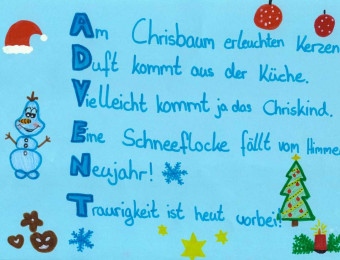 Am Chrisbaum erleuchten Kerzen
Duft kommt aus der Küche.
Vielleicht kommt ja das Chriskind.
Eine Schneeflocke fällt vom Himme
Neujahr!
Traurigkeit ist heut vorbei!